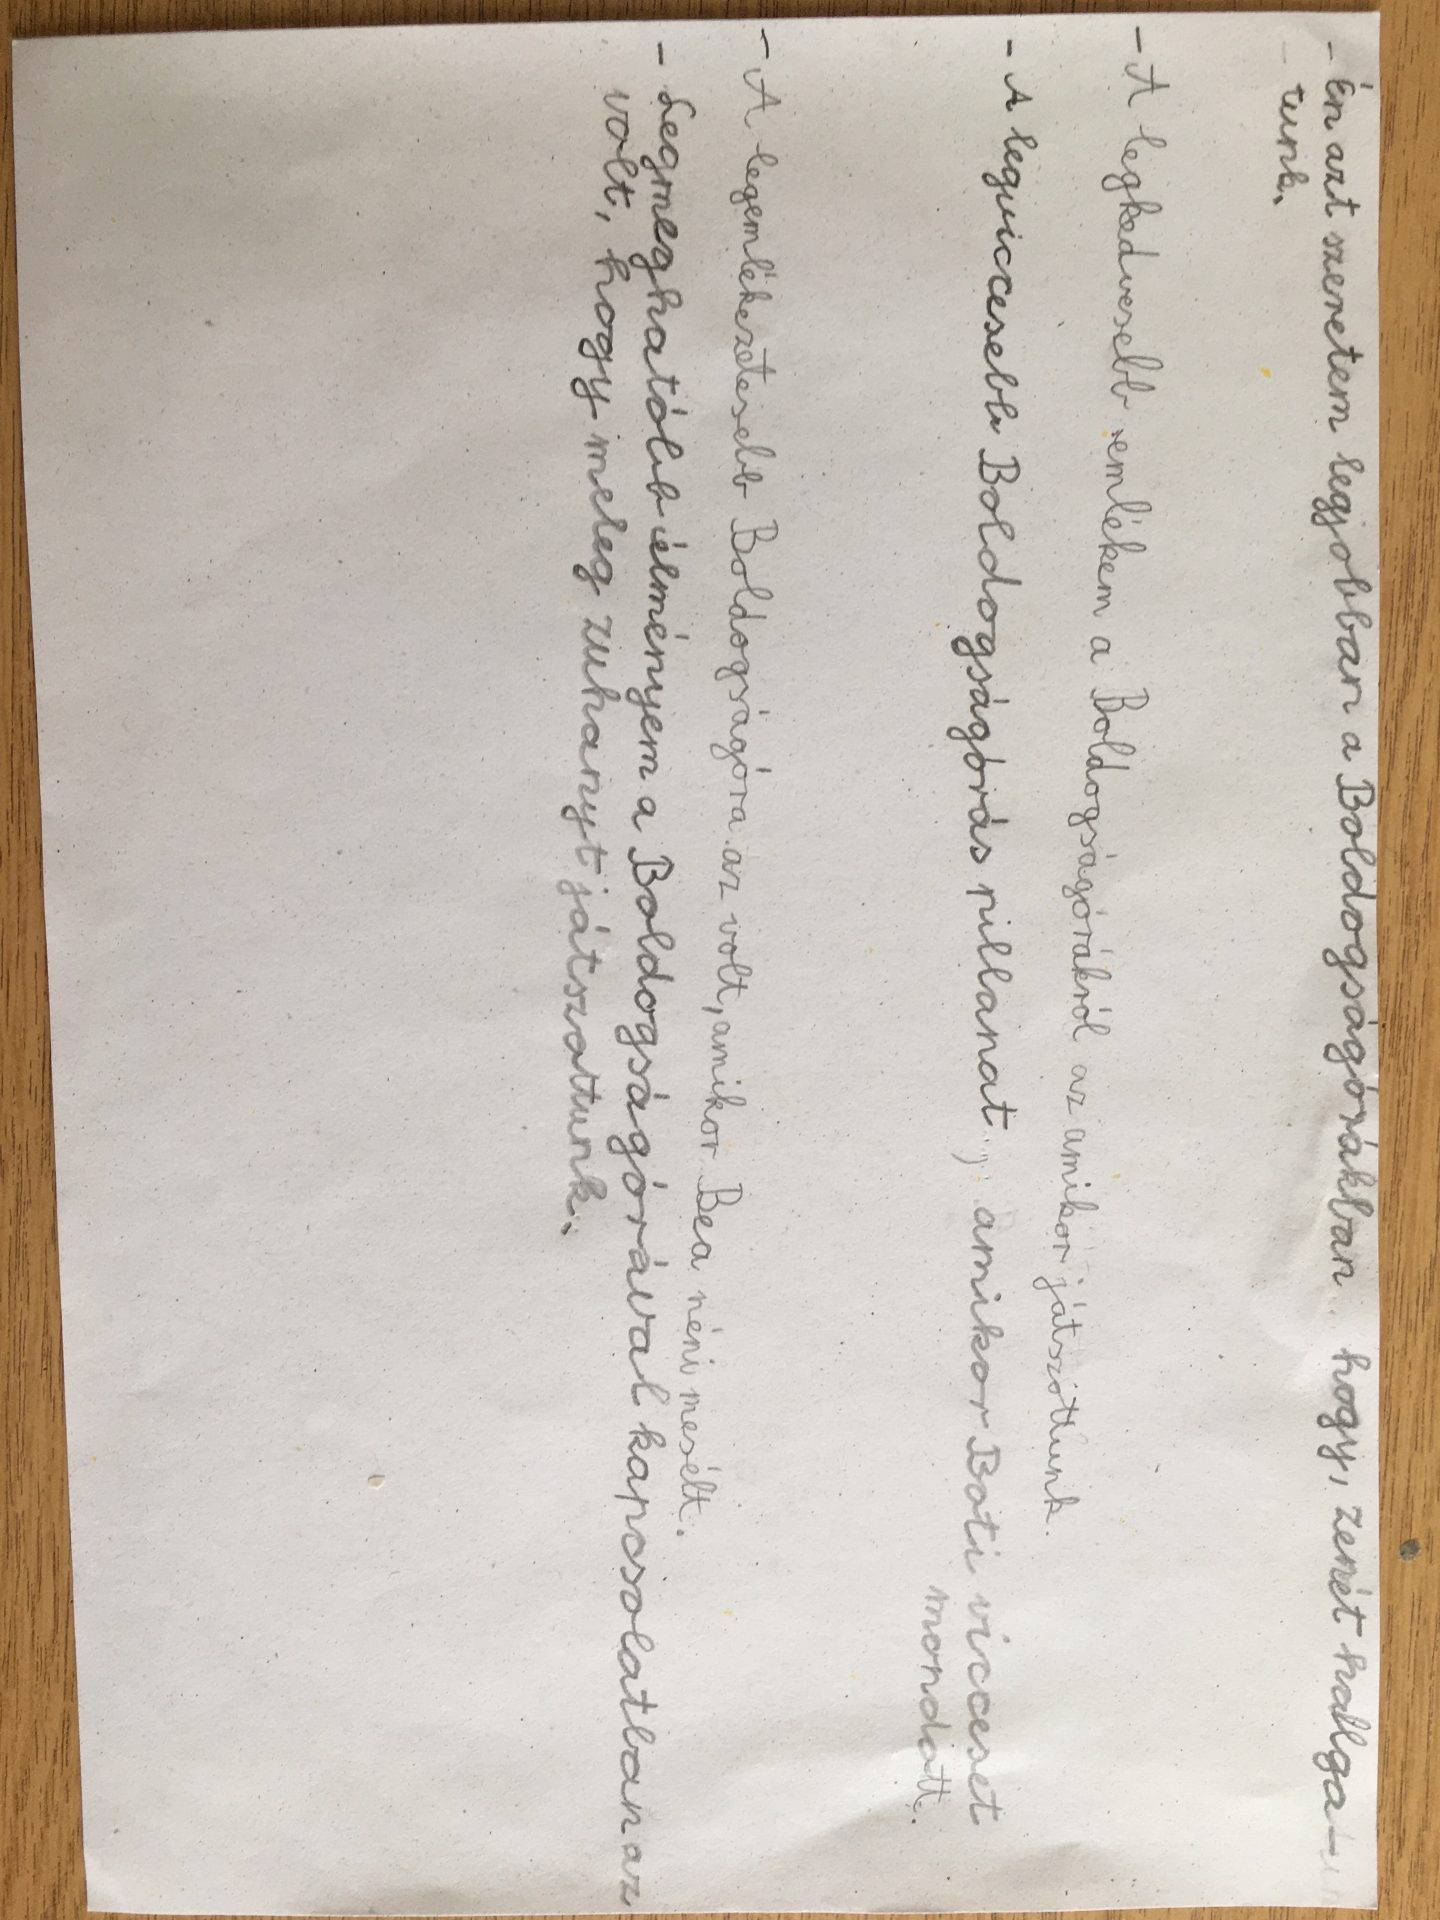 - Én azt szeretem legjobban a Boldogságórákban hogy, zenét hallga-
tunk.
- A legkedvesebb emlékem a Boldogságórákról az amikor játszottunk.
- A legviccesebb Boldogságórás pillanat, amikor Boti vicceset
mondott.
- A legemlékezetesebb Boldogságóra az volt, amikor Bea néni mesélt.
- Legmeghatóbb élményem a Boldogságórával kapcsolatban az
volt, hogy meleg zuhanyt játszottunk.